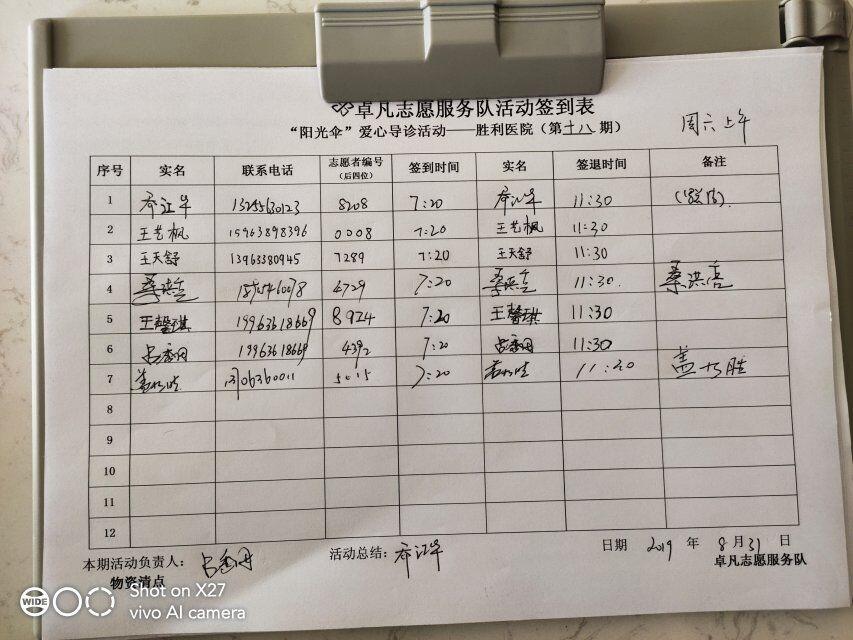 卓凡志愿服务队活动签到表
“阳光伞”爱心导诊活动——胜利医院（第十八期） 周六上午
序号 实名 联系电话 志愿者编号（后四位） 签到时间 实名 签退时间 备注
1 乔江华 13255630123 8208 7:20 乔江华 11:30
2 王艺枫 15963898396 0008 7:20 王艺枫 11:30
3 王天舒 13963380945 7289 7:20 王天舒 11:30
4 桑洪亮 4729 7:20 桑洪亮 11:30 桑洪亮
5 王馨琪 19963618669 8924 7:20 王馨琪 11:30
6 19963618669 4392 7:20 11:30
7 5015 7:20 11:20
8
9
10
11
12
本期活动负责人： 活动总结：乔江华 日期 2019 年 8 月 31 日
物资清点 卓凡志愿服务队
WIDE Shot on X27
vivo AI camera